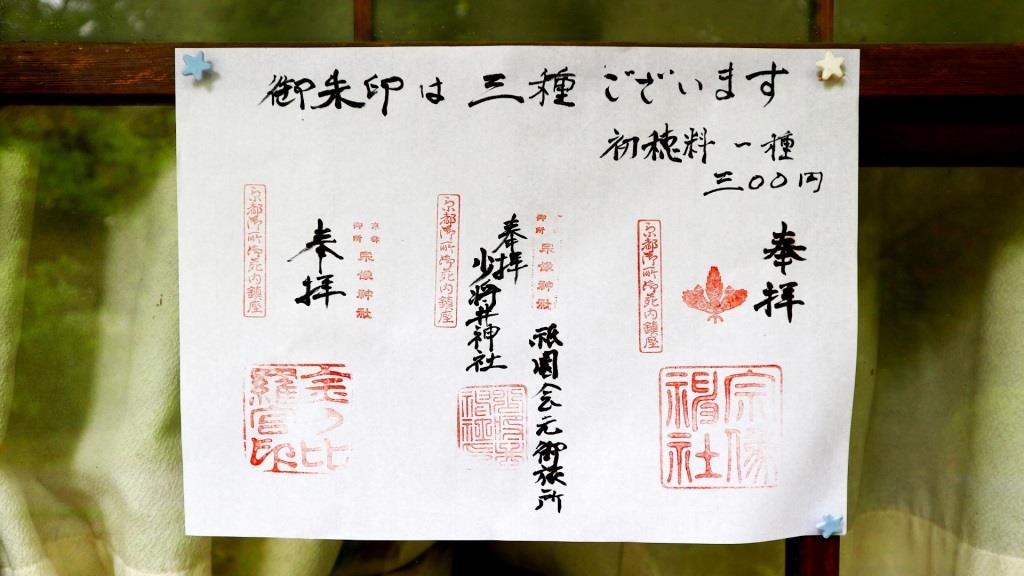 御朱印は三種ございます
初穂料一種
三〇〇円
奉拝
京都御所御苑内鎮座
宗像神社
奉拝
少将井神社
京都
御所
宗像神社
京都御所御苑内鎮座
祇園会元御旅所
御所
宗像神社
京都御所御苑内鎮座
奉拝
金刀比
羅宮印